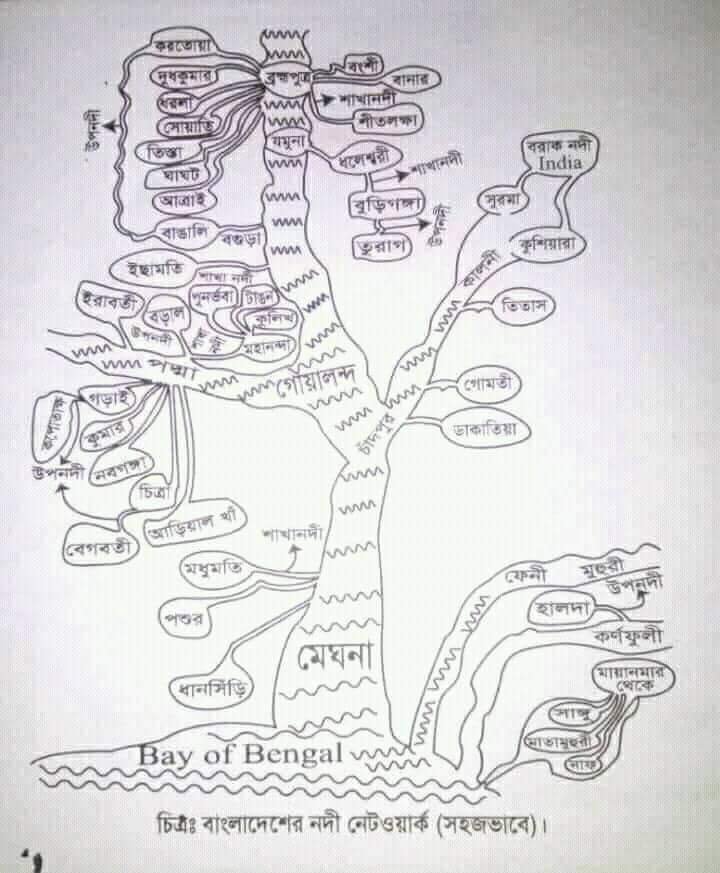 করতোয়া
দুধকুমার
ধরলা
সোয়াতি
তিস্তা
ঘাঘট
আত্রাই
বাঙালি
বগুড়া
উপনদী
ব্রহ্মপুত্র
বংশী
বানার
শাখানদী
শীতলক্ষা
যমুনা
ধলেশ্বরী
শাখানদী
বুড়িগঙ্গা
উপনদী
তুরাগ
বরাক নদী
India
সুরমা
কুশিয়ারা
কালনী
তিতাস
গোমতী
ডাকাতিয়া
ইছামতি
শাখা নদী
ইরাবতী
বড়াল
উপনদী
পুনর্ভবা
টাঙন
কুলিখ
মহানন্দা
পদ্মা
গোয়ালন্দ
চাঁদপুর
কপোতাক্ষ
গড়াই
কুমার
উপনদী
নবগঙ্গা
চিত্রা
বেগবতী
আড়িয়াল খাঁ
শাখানদী
মধুমতি
পশুর
ধানসিঁড়ি
মেঘনা
ফেনী
মুহুরী
উপনদী
হালদা
কর্ণফুলী
মায়ানমার
থেকে
সাঙ্গু
মাতামুহুরী
নাফ
Bay of Bengal
চিত্রঃ বাংলাদেশের নদী নেটওয়ার্ক (সহজভাবে)।